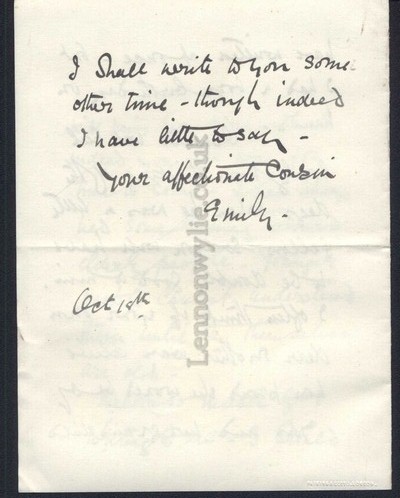 I Shall write to you some
other time - though indeed
I have little to say -
Your affectionate Cousin
Emily -
Oct
Lennonwylie.co.uk